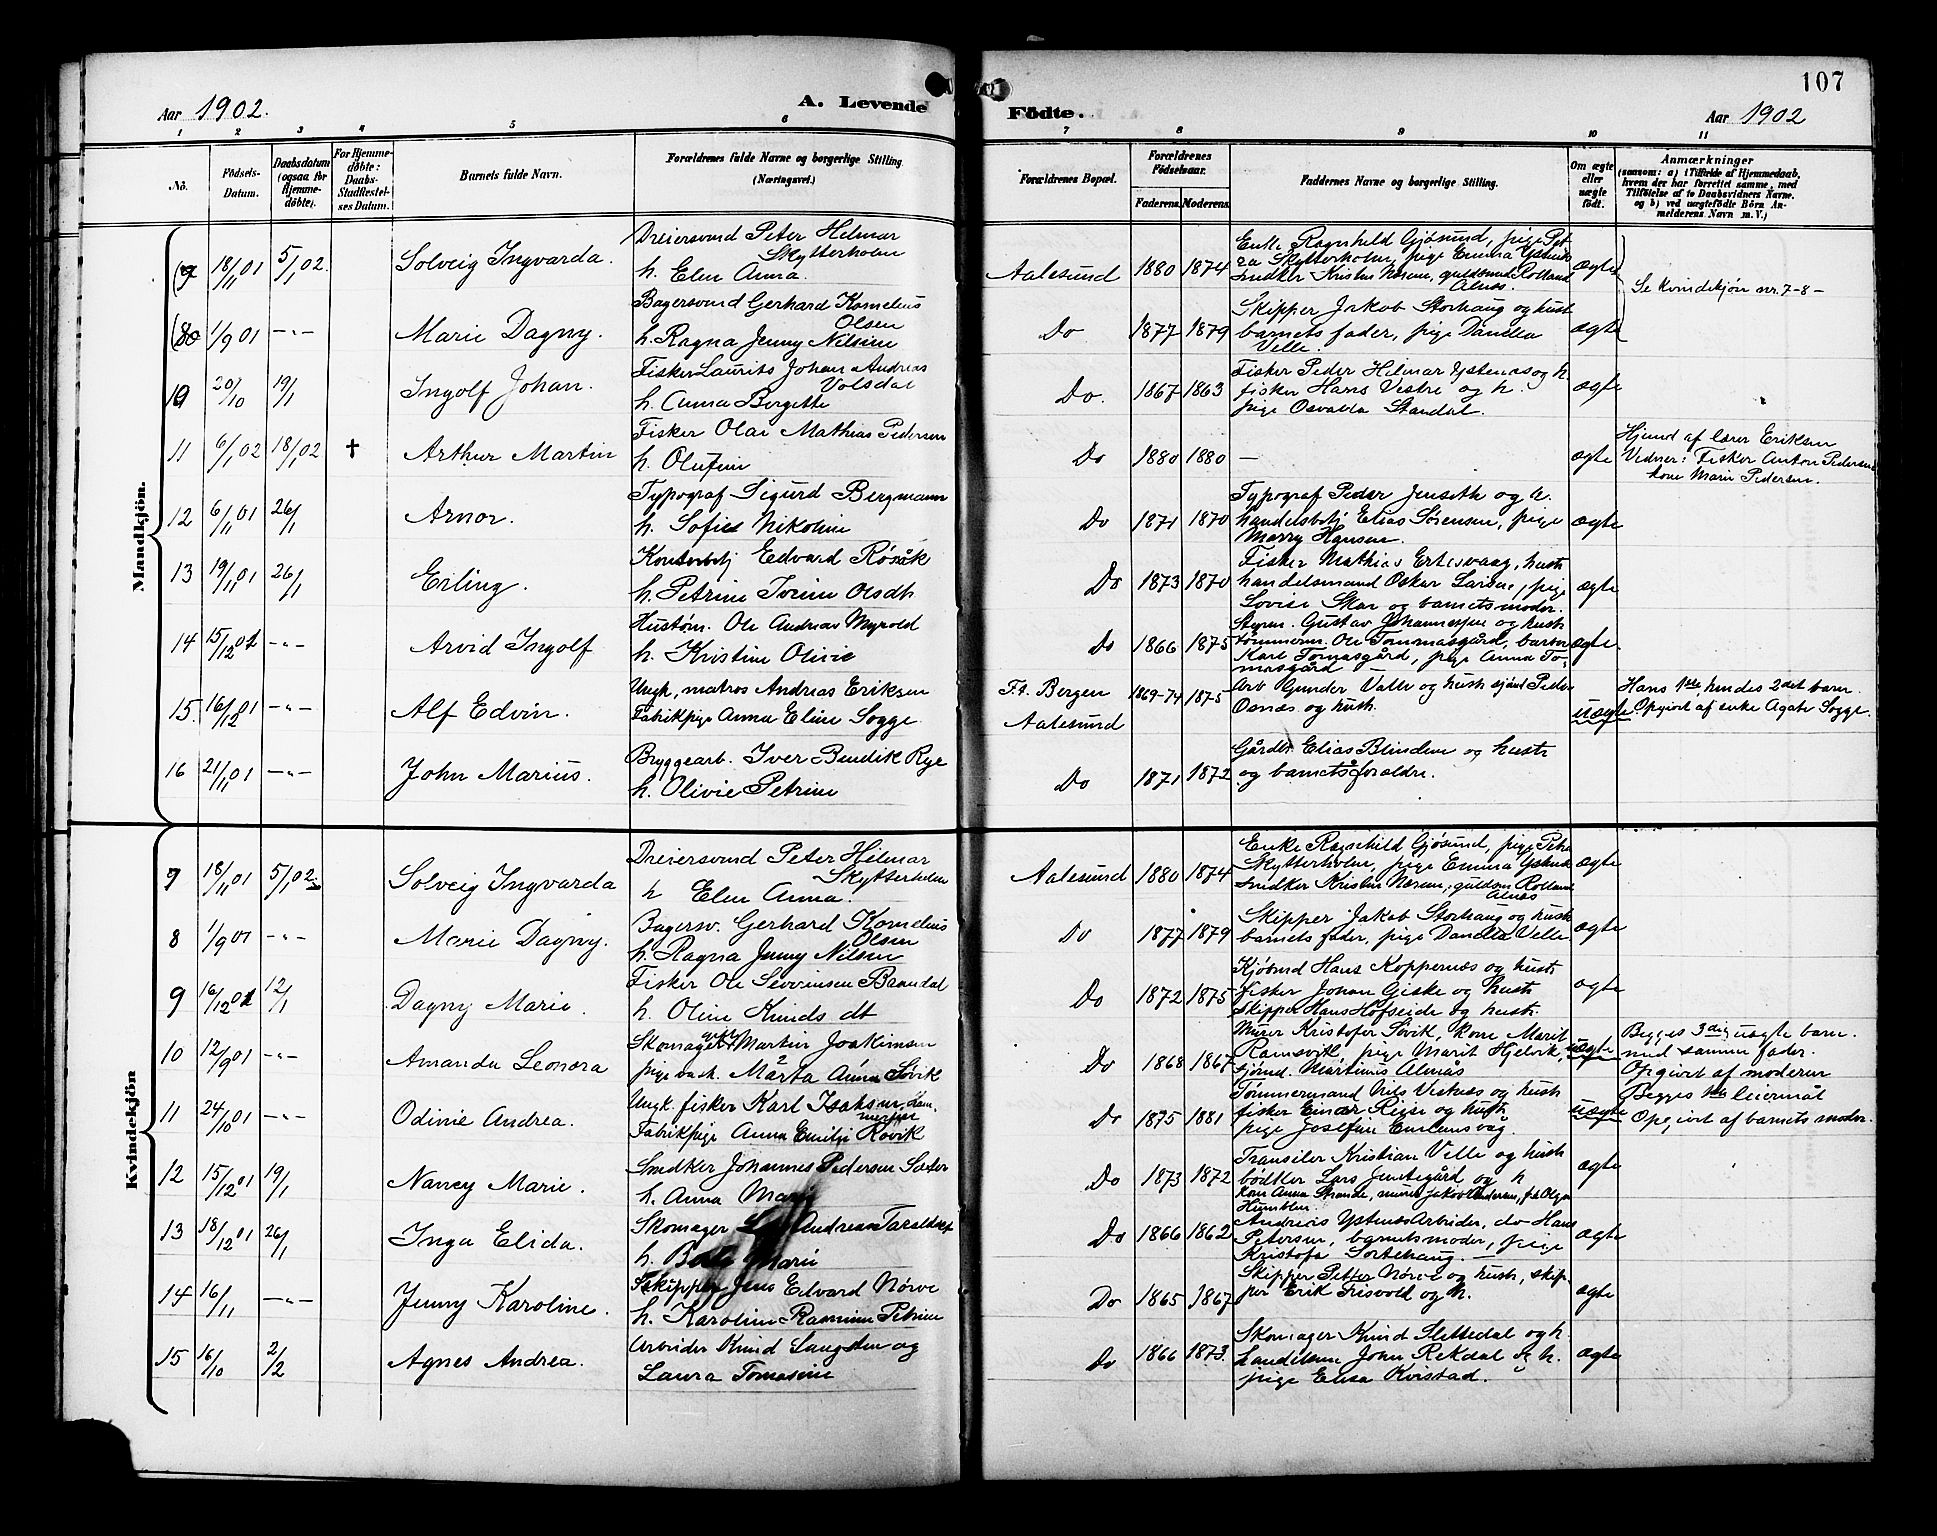 107
Aar 1902.
A. Levende
Födte.
Aar 1902
1 2 3 4 5 6 7 8 9 10 11
No.
Födsels-
Datum.
Daabsdatum
(ogsaa for
Hjemme-
döbte).
For Hjemme-
döbte:
Daabs-
Stadfæstel-
ses Datum.
Barnets fulde Navn.
Forældrenes fulde Navne og borgerlige Stilling
(Næringsvei.)
Forældrenes Bopæl.
Forældrenes
Födselsaar.
Faderens. Moderens.
Faddernes Navne og borgerlige Stilling.
Om ægte
eller
uægte
födt.
Anmærkninger
(saasom: a) i Tilfælde af Hjemmedaab,
hvem der har forrettet samme, med
Tilföielse af to Daabsvidners Navne.
og b) ved uægtefödte Börn An-
melderens Navn m. V.)
Mandkjön.
(7 18/11 01 5/1 02. Solveig Ingvarda.
Dreiersvend Peter Helmar
Skytterholm
h. Elen Anna.
Aalesund 1880 1874
Enke Ragnhild Gjøsund, pige Pet-
ra Skytterholm, pige Emma
ægte
Se kvindekjön nr. 7-8-
(8 1/9 01 -"- Marie Dagny.
Bagersvend Gerhard Kornelius
Olsen
h. Ragna Jenny Nilsine
Do 1877 1879
Skipper Jakob Storhaug og hust
barnets fader, pige Danelea
Velle.
ægte
10 20/10 19/1 Ingolf Johan.
Fisker Laurits Johan Andreas
Volsdal
h. Anna Bergitte
Do. 1867 1863
Fisker Peder Hilmar Ystenes og h.
fisker Hans Vestre og h.
pige Osvalda Standal.
ægte
11 6/1 02 18/1 02 † Arthur Martin
Fisker Olai Mathias Pedersen
h. Olufine
Do 1880 1880 —
ægte
Hjemd af lærer Eriksen
Vidner: Fisker Anton Pedersen
kone Marie Pedersen.
12 6/11 01 26/1 Arnor.
Typograf Sigurd Bergmann
h. Sofie Nikoline
Do 1871 1870
Typograf Peder Jenseth og h.
handelsbetj Elias Sörensen, pige
Marry Hansen.
ægte
13 19/11 01 26/1 Erling.
Kontorbetj Edvard Rösåk
h. Petrine Olsdt
Do 1873 1870
Fisker Mathias Ertesvaag, hust
handelsmand Oskar Larsen, pige
Lovise Skar og barnets moder.
ægte
14 15/12 01 -"- Arvid Ingolf
Hustöm. Ole Andreas Myrold
h. Kristine Olivie
Do 1866 1875
Styrm. Gustav Johannesen og hust
tömmerm. Ole Tommasgård,
Karl Tomasgård, pige Anna To-
masgård
ægte.
15. 16/12 01 -"- Alf Edvin.
Ungk, matros Andreas Eriksen
Fabrikpige Anna Eline Sogge
F.t. Bergen
Aalesund
1869-74 1875
Arb Gunder Valle og hust Peder
Osnæs og hust.
uægte
Hans 1ste, hendes 2det barn.
Opgivet af enke Agate Sogge.
16 21/11 01 -"- John Marius.
Bryggearb. Iver Bendik Rye
h. Olivie Petrine
Do 1871 1872
Gårdbr. Elias Blindem og hust
og barnets forældre.
Kvindekjön
7 18/11 01 5/1 02. Solveig Ingvarda
Dreiersvend Peter Hilmar
Skytterholm
h Elen Anna.
Aalesund 1880 1874
Enke Ragnhild Gjøsund, pige Petra
Skytterholm, pige Emma
ægte
8 1/9 01 -"- Marie Dagny.
Bagersv. Gerhard Kornelius
Olsen
h. Ragna Jenny Nilsen
Do 1877 1879
Skipper Jakob Storhaug og hust
barnets fader, pige Danella Velle
ægte
9 16/12 01 12/1 Dagny Marie.
Fisker Ole Severinsen Barndal
h. Oline Knudsdt
Do 1872 1875
Kjöbmd Hans Koppernæs og hust
Fisker Johan Giske og hust
Skipper Hans Hofseide og hust.
ægte
10 12/9 01 -"- Amanda Leonora
Skomager Martin Joakimsen
pige Märta Anna Søvik
Do 1868 1867
Murer Kristofer Søvik, kone Marit
Ramsvik, pige Marit Hjelvik,
sjömd. Martinus Alnæs
uægte
Begges 3die uægte barn.
med samme fader.
Opgivet af moderen
11 24/10 01 -"- Odinie Andrea.
Ungk. fisker Karl Isaksen
Fabrikpige Anna Emilje Rövik
Do 1875 1881
Tömmermand Nils Vestnæs og hust
fisker Einar Reise og hust
pige Josefine
uægte
Begges 1ste leiermål
Opgivet af barnets moder.
12 15/12 01 19/1 Nancy Marie.
Snedker Johannes Pedersen Sæter
h. Anna Marie
Do 1873 1872
Transiler Kristian Velle og hust
bödtker Lars og h
ægte
13 18/12 01 26/1 Inga Elida.
Skomager Andreas Taraldset
h. Marie
Do 1866 1862
Andreas Ystenes Arbeider, do Hans
Petersen, barnets moder, pige
Kristofa Sortehaug. —
ægte
14 16/11 -"- Jenny Karoline.
Skipper Jens Edvard Nørve
h. Karoline Rasmine Petrine
Do 1865 1867
Skipper Petter Nørve og hust, skip-
per Erik Frisvold og h.
ægte
15 16/10 2/2 Agnes Andrea.
Arbeider Knud og
Laura Tomasine
Do 1866 1873.
Skomager Knud Slettedal og h.
John Rekdal og h.
pige Elisa Kvistad.
ægte